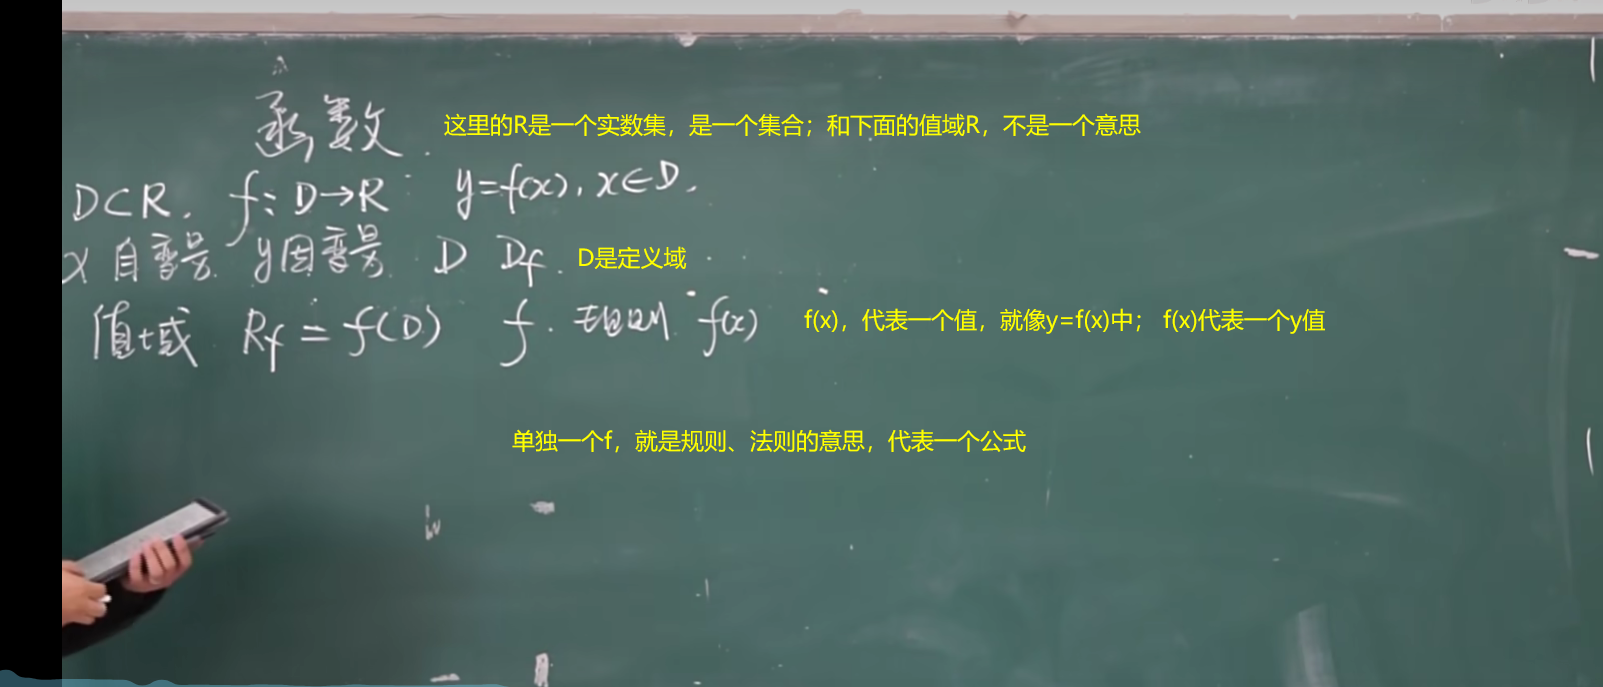 函数
这里的R是一个实数集，是一个集合；和下面的值域R，不是一个意思
D⊂R. f: D→R y=f(x), x∈D.
x 自变量 y因变量 D Df. D是定义域
值域 Rf = f(D) f. 规则 f(x) f(x)，代表一个值，就像y=f(x)中； f(x)代表一个y值
单独一个f，就是规则、法则的意思，代表一个公式